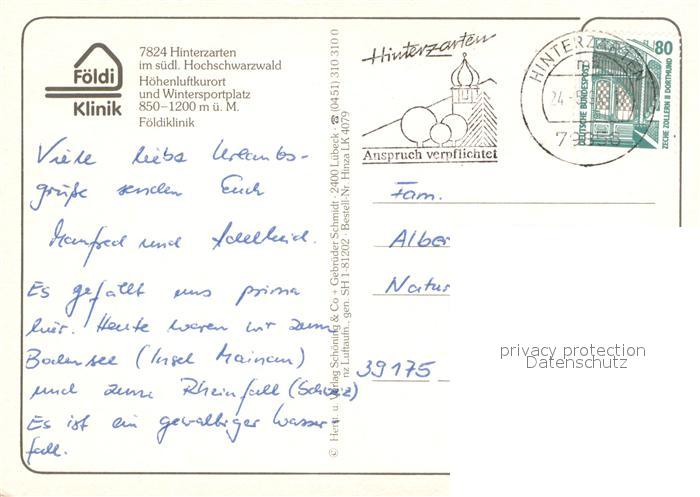 Földi
Klinik
7824 Hinterzarten
im südl. Hochschwarzwald
Höhenluftkurort
und Wintersportplatz
850–1200 m ü. M.
Földiklinik
Viele liebe Urlaubs-
grüße senden Euch
Manfred und Adelheid.
Es gefällt uns prima
hier. Heute waren wir zum
Bodensee (Insel Mainau)
und zum Rheinfall (Schweiz)
Es ist ein gewaltiger Wasser-
fall.
© Herst. u. Verlag Schöning & Co + Gebrüder Schmidt · 2400 Lübeck · ☎ (0451) 310 310 0
nz Luftaufn., gen. SH 1-81202 · Bestell-Nr. Hinza LK 4079
Hinterzarten
Anspruch verpflichtet
HINTERZARTEN
24.-
79856
80
DEUTSCHE BUNDESPOST
ZECHE ZOLLERN II DORTMUND
Fam.
Alber
Natur
39175
privacy protection
Datenschutz